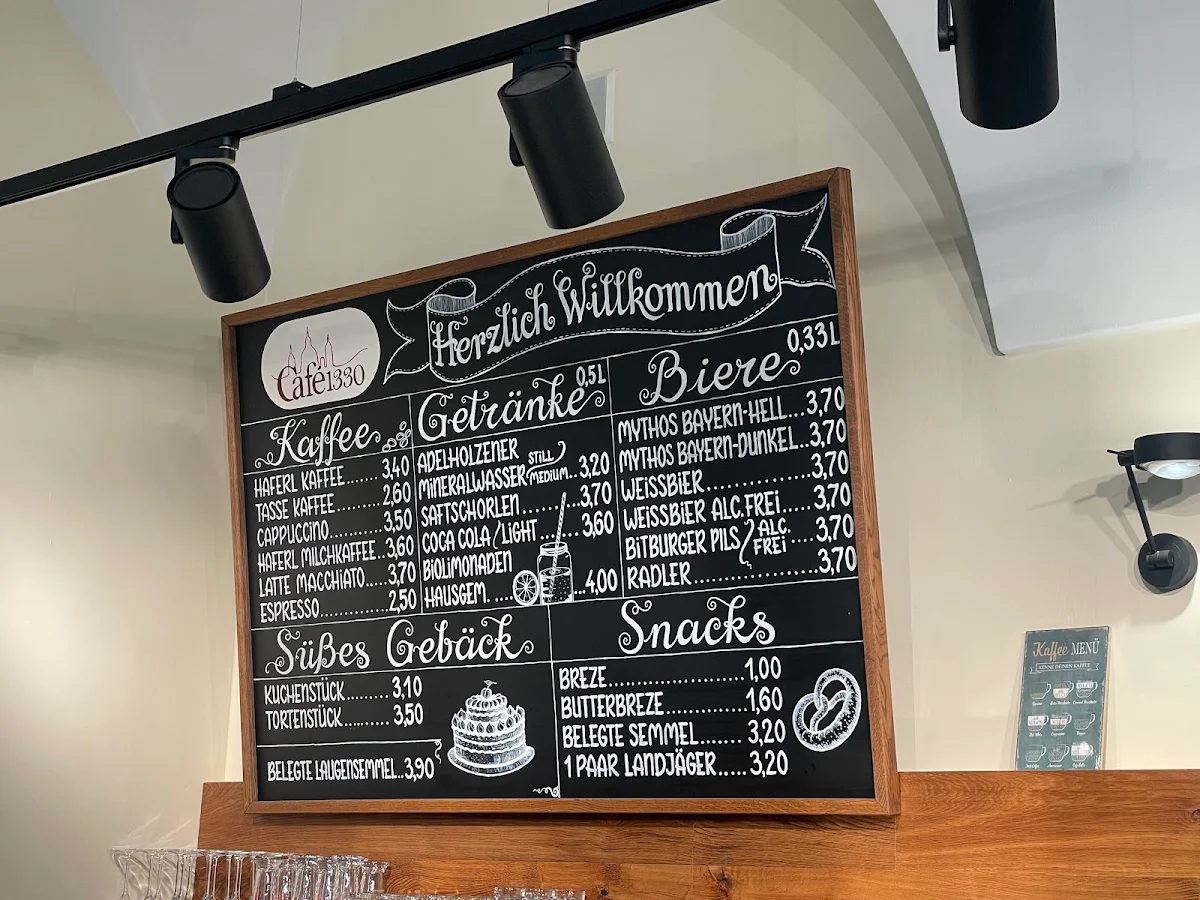 Herzlich Willkommen
Café 1330
Kaffee
HAFERL KAFFEE....... 3,40
TASSE KAFFEE.......... 2,60
CAPPUCCINO........... 3,50
HAFERL MILCHKAFFEE..3,60
LATTE MACCHIATO..... 3,70
ESPRESSO............... 2,50
Getränke 0,5L
ADELHOLZENER
MINERALWASSER STILL MEDIUM..3,20
SAFTSCHORLEN..........3,70
COCA COLA / LIGHT......3,60
BIOLIMONADEN
HAUSGEM. .... ..4,00
Biere 0,33L
MYTHOS BAYERN-HELL...3,70
MYTHOS BAYERN-DUNKEL..3,70
WEISSBIER................3,70
WEISSBIER ALC.FREI.....3,70
BITBURGER PILS / ALC. FREI ....3,70
RADLER..................3,70
Süßes Gebäck
KUCHENSTÜCK.........3,10
TORTENSTÜCK..........3,50
BELEGTE LAUGENSEMMEL..3,90
Snacks
BREZE...................1,00
BUTTERBREZE...........1,60
BELEGTE SEMMEL.......3,20
1 PAAR LANDJÄGER.....3,20
Kaffee MENÜ
KENNE DEINEN KAFFEE